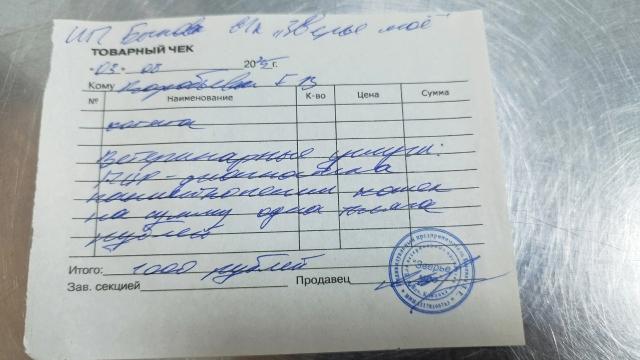 ИП Быкова в/к "Зверье моё"
ТОВАРНЫЙ ЧЕК
"03" 03 20 г.
Кому Воробьева Е В
№ Наименование К-во Цена Сумма
котята
Ветеринарные услуги:
ПЦР - диагностика
панлейкопении кошек
на сумму одна тысяча
рублей
Итого: 1000 рублей
Зав. секцией Продавец
Зверье